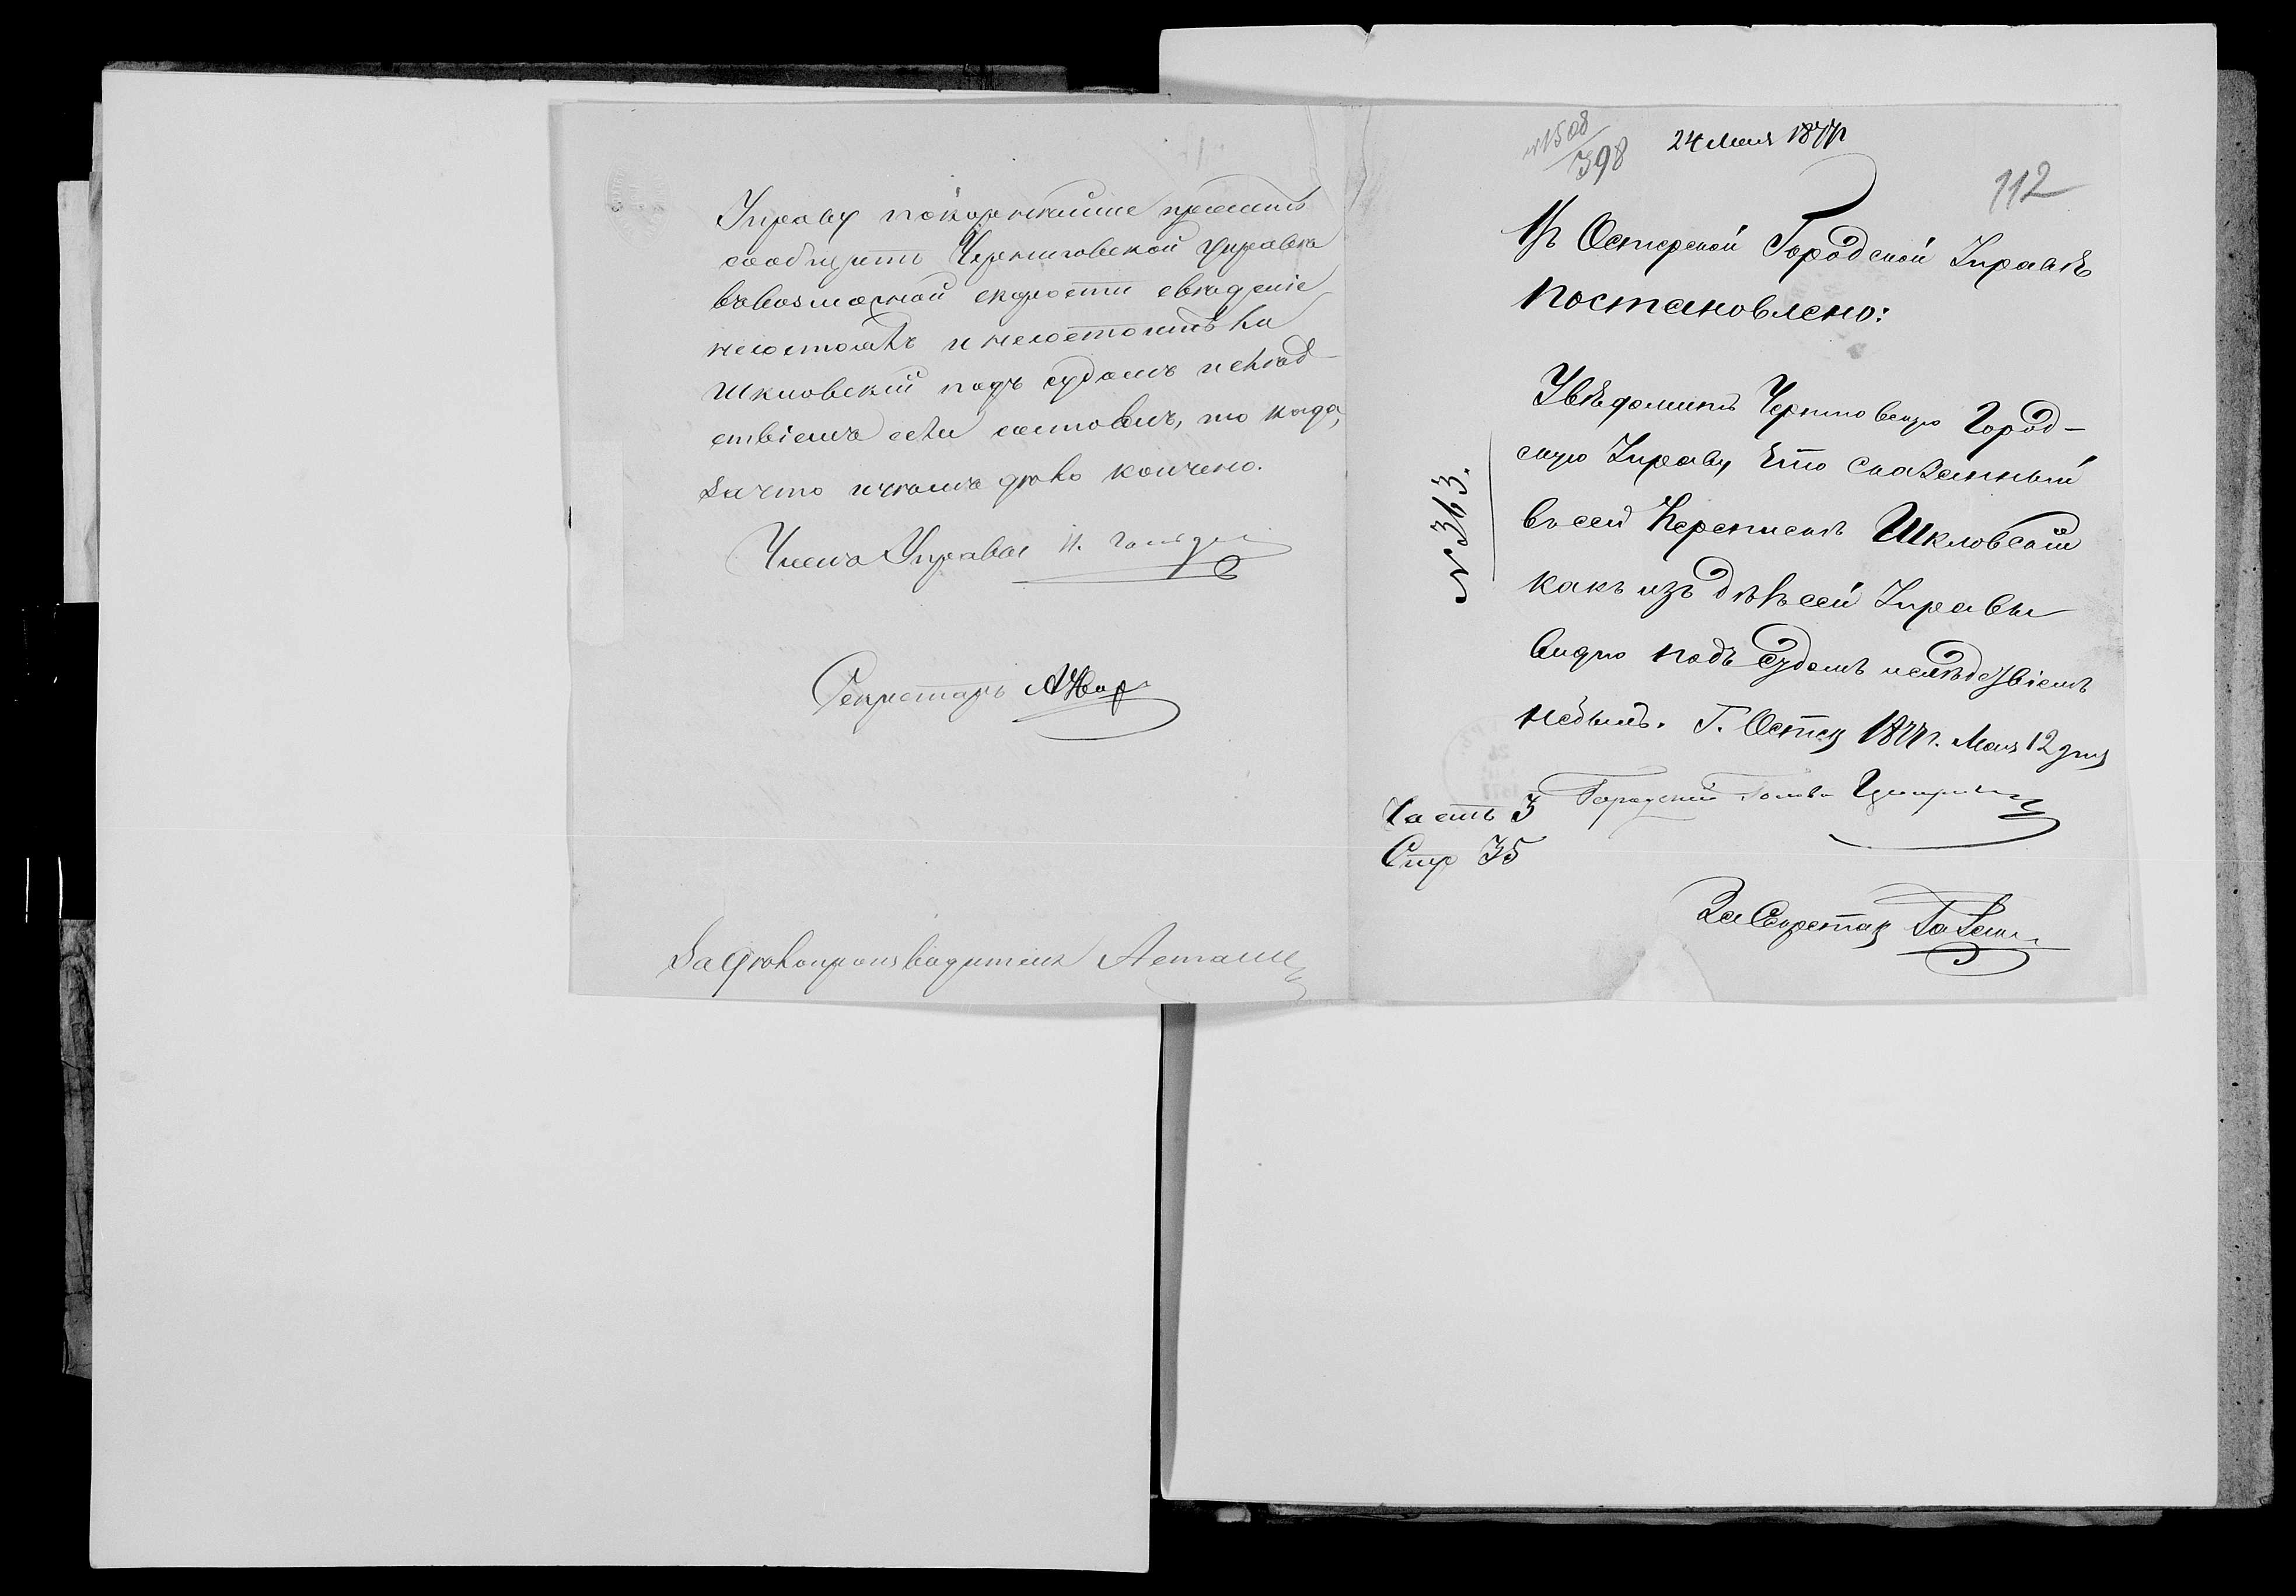 Управу покорнейше просить
сообщить Черниговской управѣ
въ возможной скорости свѣденіе
несостоялъ и несостоитъ ли
Шкловскій подъ судомъ и слѣд-
ствіемъ если состоялъ, то когда,
за что и чѣмъ дѣло кончено.
Членъ Управы И.
Секретарь
За Дѣлопроизводителя
№1508/398
24 Мая 1877г
112
Въ Остерской Городской Управѣ
постановлено:
Увѣдомить Черниговскую Город-
скую Управу, Что сказанный
въ сей Перепискѣ Шкловскій
какъ изъ дѣлъ сей Управы
видно подъ судомъ и слѣдствіемъ
небылъ. Г. Остеръ 1877г. Мая 12 дня
№ 363.
Городской Голова
Часть 3
Стр 35
За Секретаря